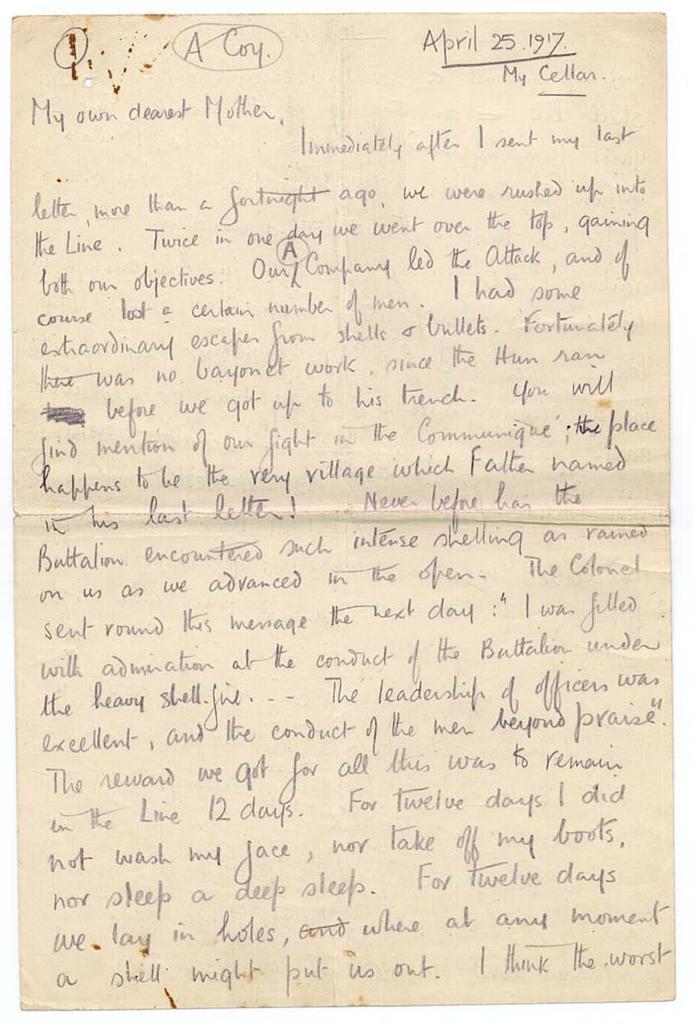 1 A Coy. April 25. 1917.
My Cellar.
My own dearest Mother,
Immediately after I sent my last
letter, more than a fortnight ago, we were rushed up into
the Line. Twice in one day we went over the top, gaining
both our objectives. Our A Company led the Attack, and of
course lost a certain number of men. I had some
extraordinary escapes from shells & bullets. Fortunately
there was no bayonet work, since the Hun ran
before we got up to his trench. You will
find mention of our fight in the Communiqué; the place
happens to be the very village which Father named
in his last letter! Never before has the
Battalion encountered such intense shelling as rained
on us as we advanced in the open. The Colonel
sent round this message the next day: "I was filled
with admiration at the conduct of the Battalion under
the heavy shell-fire. - - The leadership of officers was
excellent, and the conduct of the men beyond praise".
The reward we got for all this was to remain
in the Line 12 days. For twelve days I did
not wash my face, nor take off my boots,
nor sleep a deep sleep. For twelve days
we lay in holes, and where at any moment
a shell might put us out. I think the worst